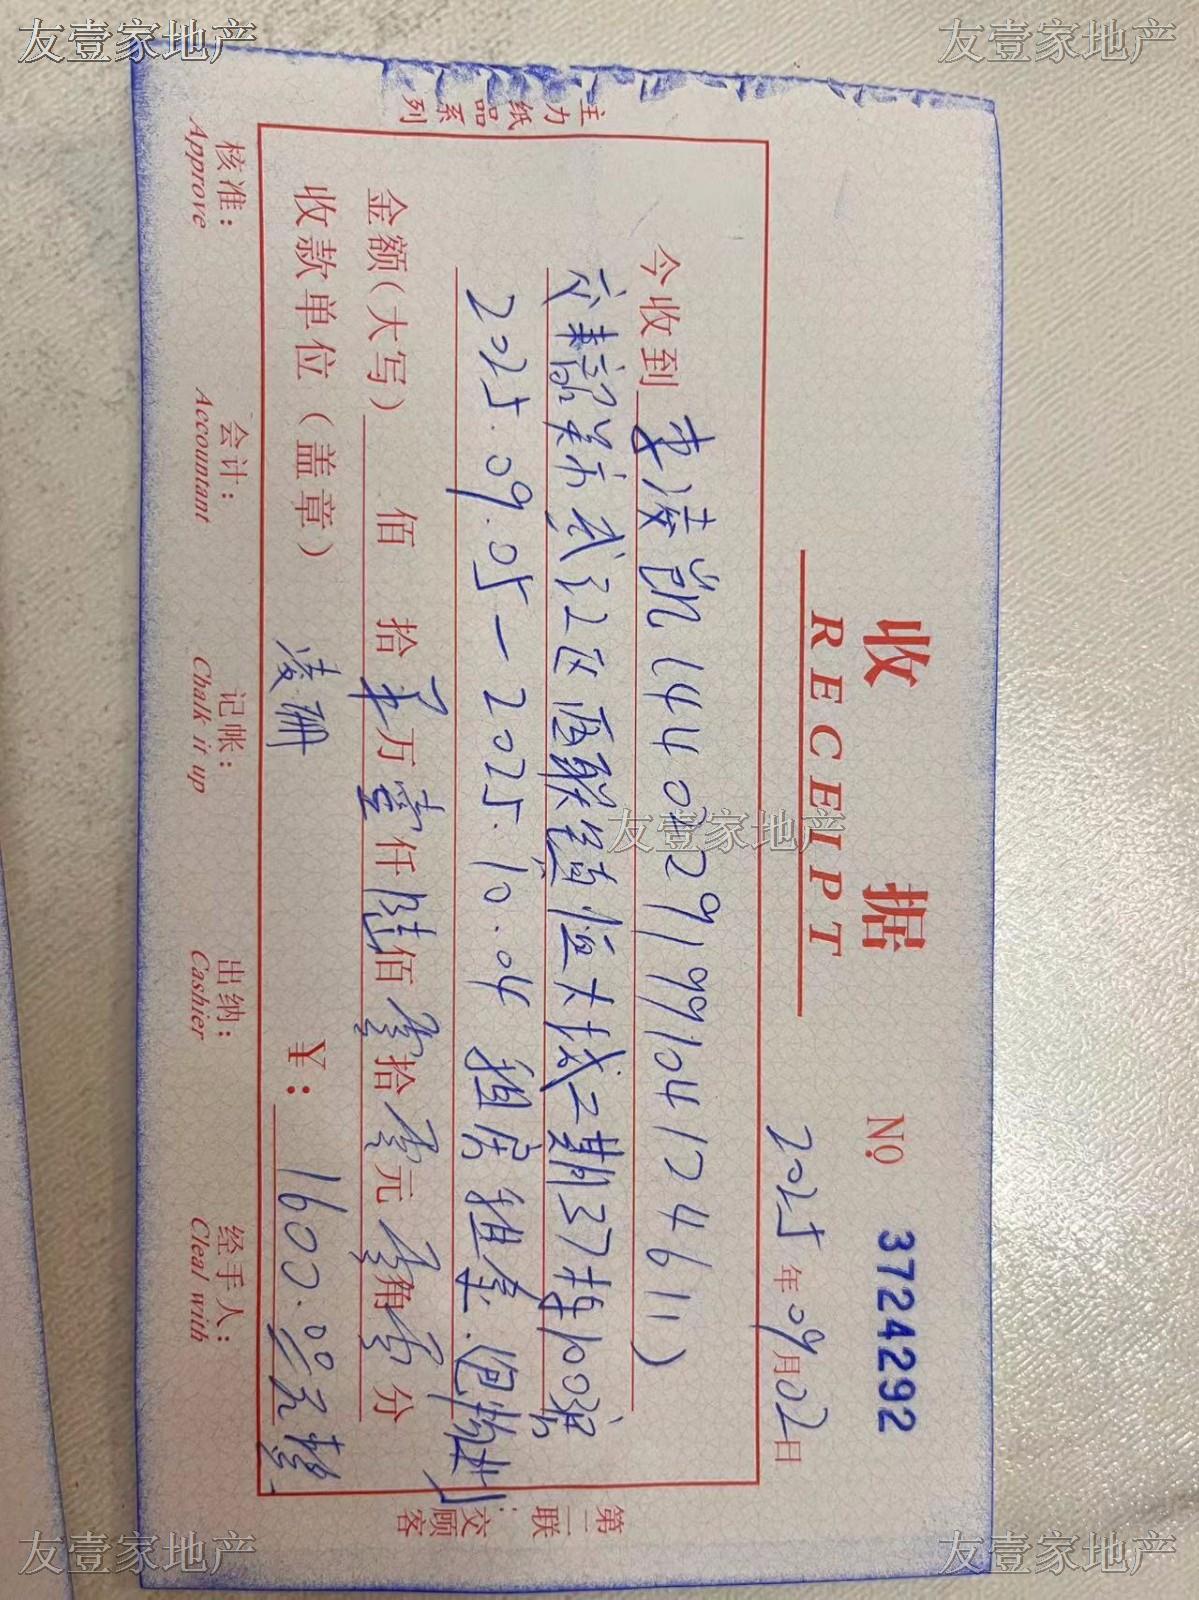 友壹家地产
友壹家地产
主力纸品系列
收 据
RECEIPT
№ 3724292
2025年09月02日
今收到 李凌凯(440229199104174611)
韶关市武江区西联镇恒大城二期37栋
2025.09.05-2025.10.04 租房租金.(包物业)
金额(大写) 佰 拾 零 万 壹 仟 陆 佰 零 拾 零 元 零 角 零 分
收款单位(盖章) 凌珊 ¥: 1600.00元整
核准: 会计: 记帐: 出纳: 经手人:
Approve Accountant Chalk it up Cashier Cleal with
第二联:交顾客
友壹家地产
友壹家地产
友壹家地产